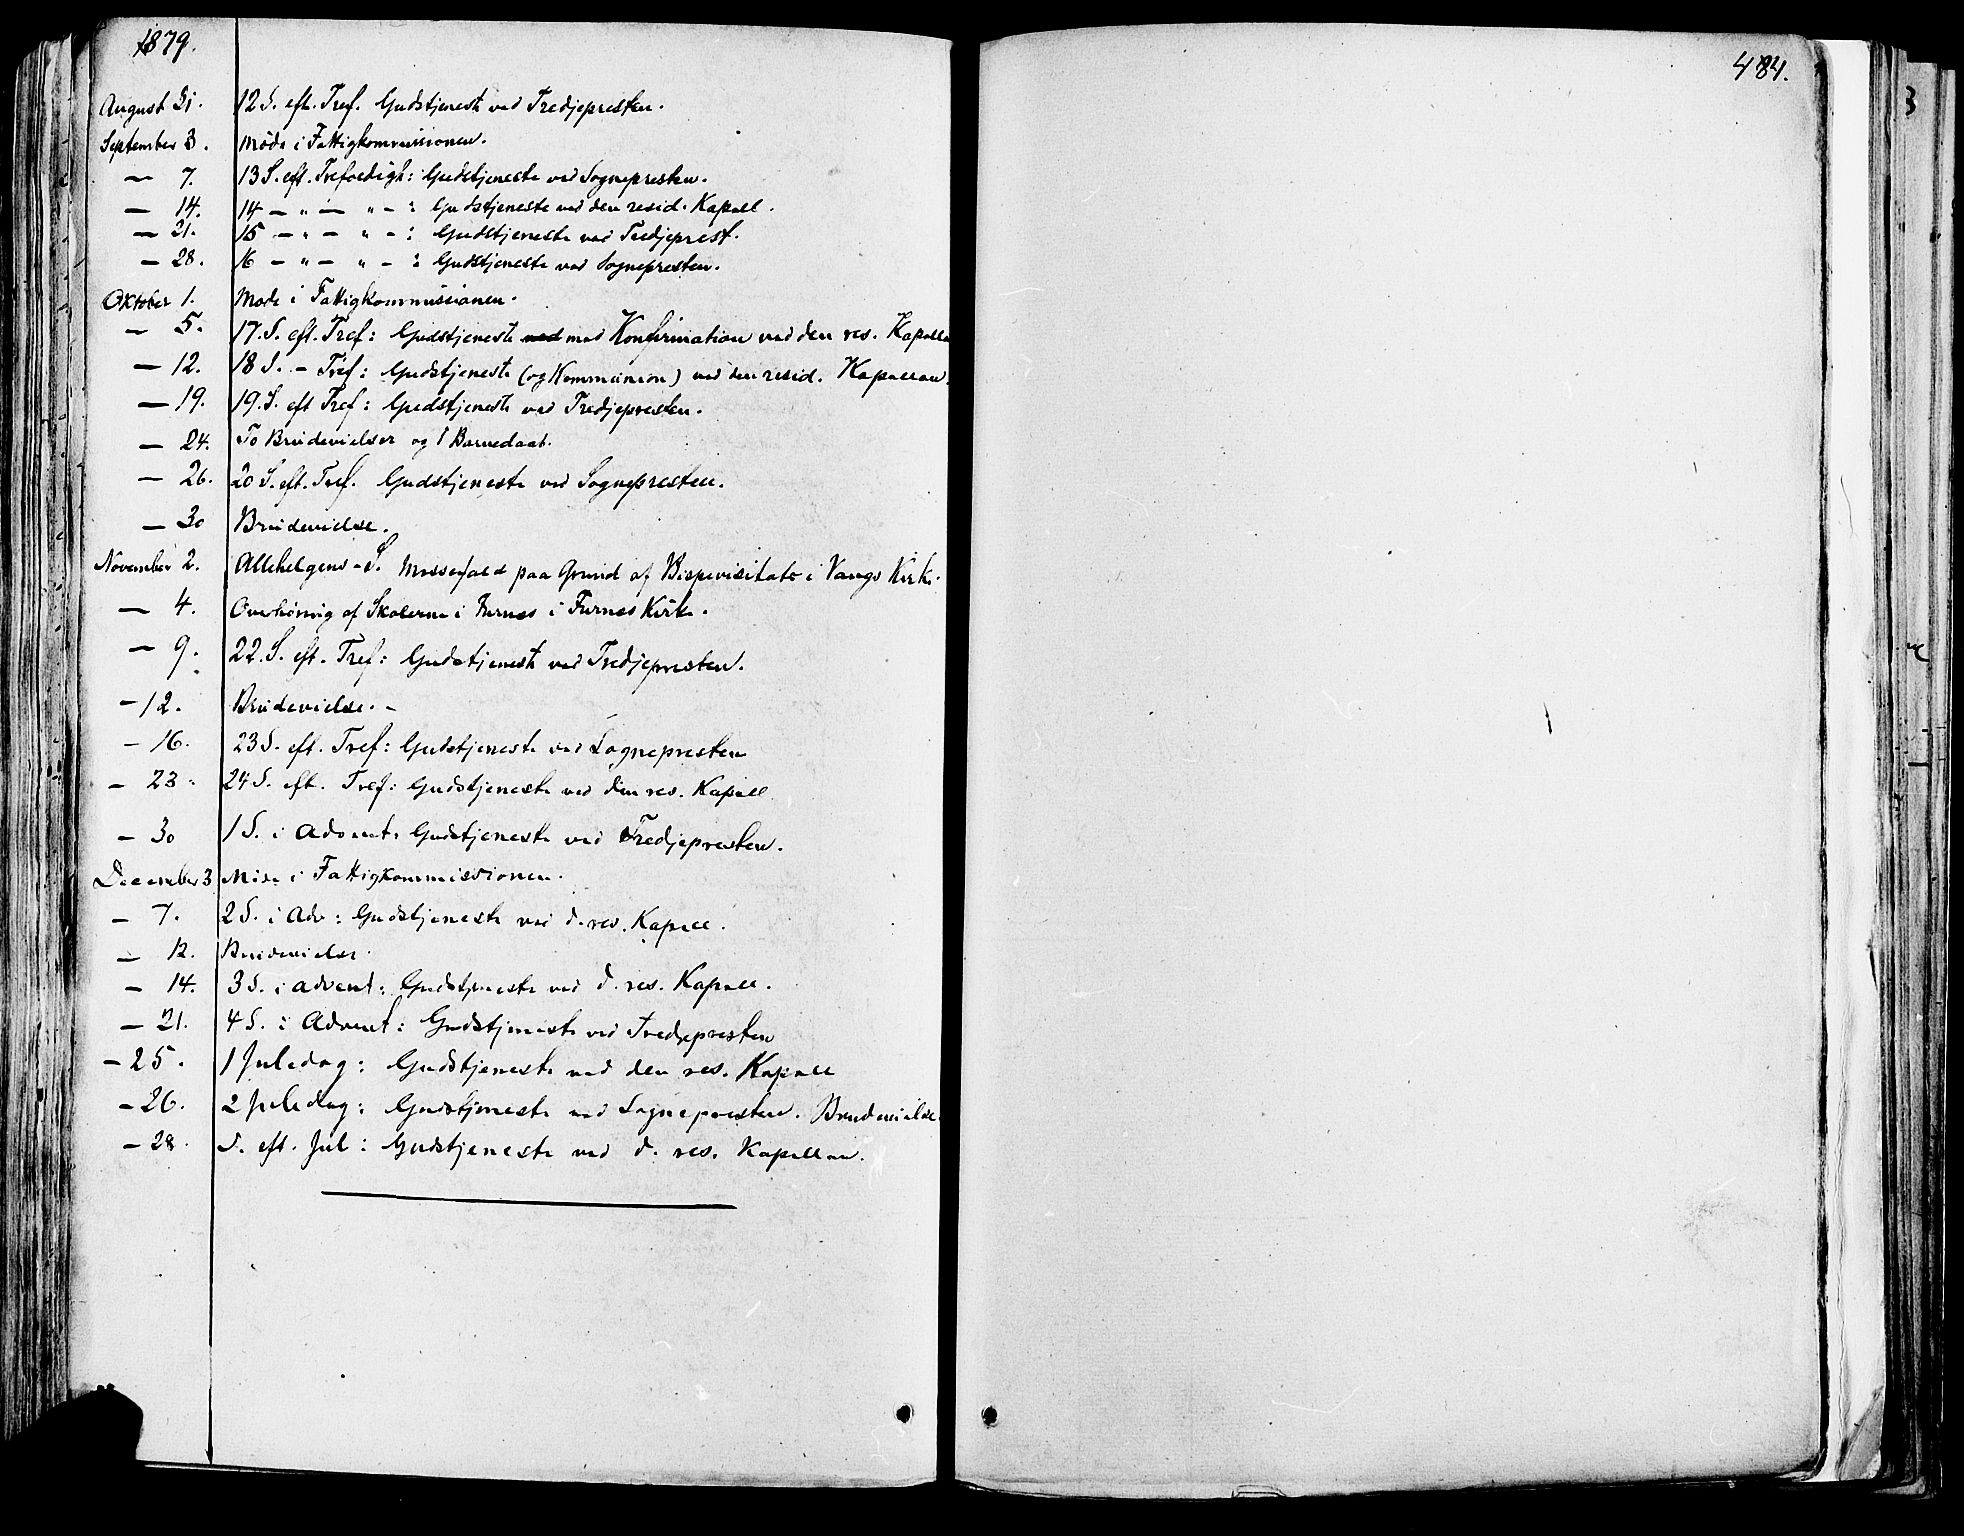 1879.
484.
August 31. 12 S. eft. Tref. Gudstjeneste ved Tredjepresten.
September 3. Møde i Fattigkommissionen.
— 7. 13 S. eft. Trefoldigh: Gudstjeneste ved Sognepresten.
— 14. 14 — " — " — : Gudstjeneste ved den resid. Kapell.
— 21. 15 — " — " — : Gudstjeneste ved Tredjeprest.
— 28. 16 — " — " — : Gudstjeneste ved Sognepresten.
Oktober 1. Møde i Fattigkommissionen.
— 5. 17. S. eft. Tref: Gudstjeneste med Konfirmation ved den res. Kapellan
— 12. 18 S. – Tref: Gudstjeneste (og Kommunion) ved den resid. Kapellan.
— 19. 19. S. eft Tref: Gudstjeneste ved Tredjepresten.
— 24. To Brudevielser og 1 Barnedaab.
— 26. 20 S. eft. Tref. Gudstjeneste ved Sognepresten.
— 30 Brudevielse.
November 2. Allehelgens-S. Messefald paa Grund af Bispevisitats i Vangs Kirke.
— 4. Overhøring af Skolerne i Furnes i Furnes Kirke.
— 9. 22. S. eft. Tref: Gudstjeneste ved Tredjepresten.
— 12. Brudevielse. –
— 16. 23 S. eft. Tref: Gudstjeneste ved Sognepresten
— 23. 24 S. eft. Tref: Gudstjeneste ved den res. Kapell
— 30 1 S. i Advent: Gudstjeneste ved Tredjepresten.
December 3 Møde i Fattigkommissionen.
— 7. 2 S. i Adv: Gudstjeneste ved d. res. Kapell.
— 12. Brudevielse.
— 14. 3 S. i Advent: Gudstjeneste ved d. res. Kapell.
— 21. 4 S. i Advent: Gudstjeneste ved Tredjepresten
— 25. 1 Juledag: Gudstjeneste ved den res. Kapell
— 26. 2 Juledag: Gudstjeneste ved Sognepresten. Brudevielse.
— 28. S. eft. Jul: Gudstjeneste ved d. res. Kapellan.